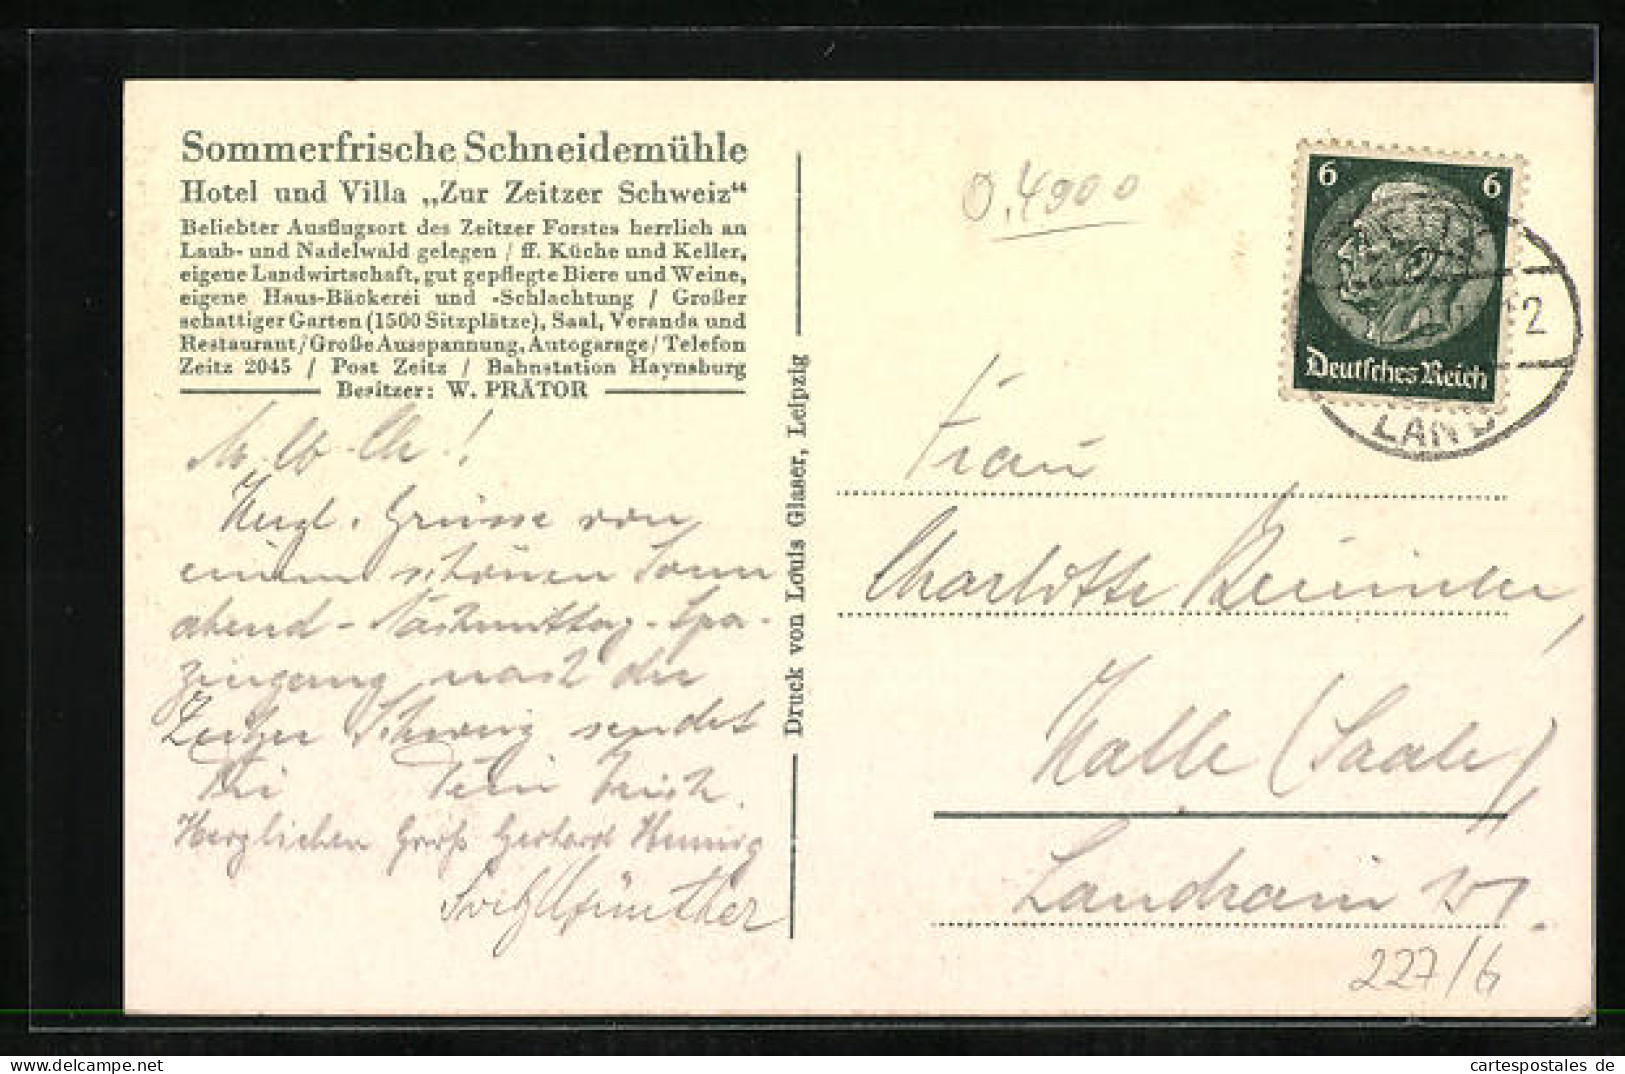 Sommerfrische Schneidemühle
Hotel und Villa „Zur Zeitzer Schweiz“
Beliebter Ausflugsort des Zeitzer Forstes herrlich an
Laub- und Nadelwald gelegen / ff. Küche und Keller,
eigene Landwirtschaft, gut gepflegte Biere und Weine,
eigene Haus-Bäckerei und -Schlachtung / Großer
schattiger Garten (1500 Sitzplätze), Saal, Veranda und
Restaurant / Große Ausspannung, Autogarage / Telefon
Zeitz 2045 / Post Zeitz / Bahnstation Haynsburg
Besitzer: W. PRÄTOR
Herzl. Grüsse von
einem schönen Sonn
abend-Nachmittag-Spa-
ziergang nach der
Zeitzer Schweiz sendet
Dir Dein
Herzlichen Gruß Gerhard Hennig
Druck von Louis Glaser, Leipzig
0.4900
6 6
Deutsches Reich
2
LAND
Frau
Charlotte
Halle (Saale)
Landrain
227/6
cartespostales de